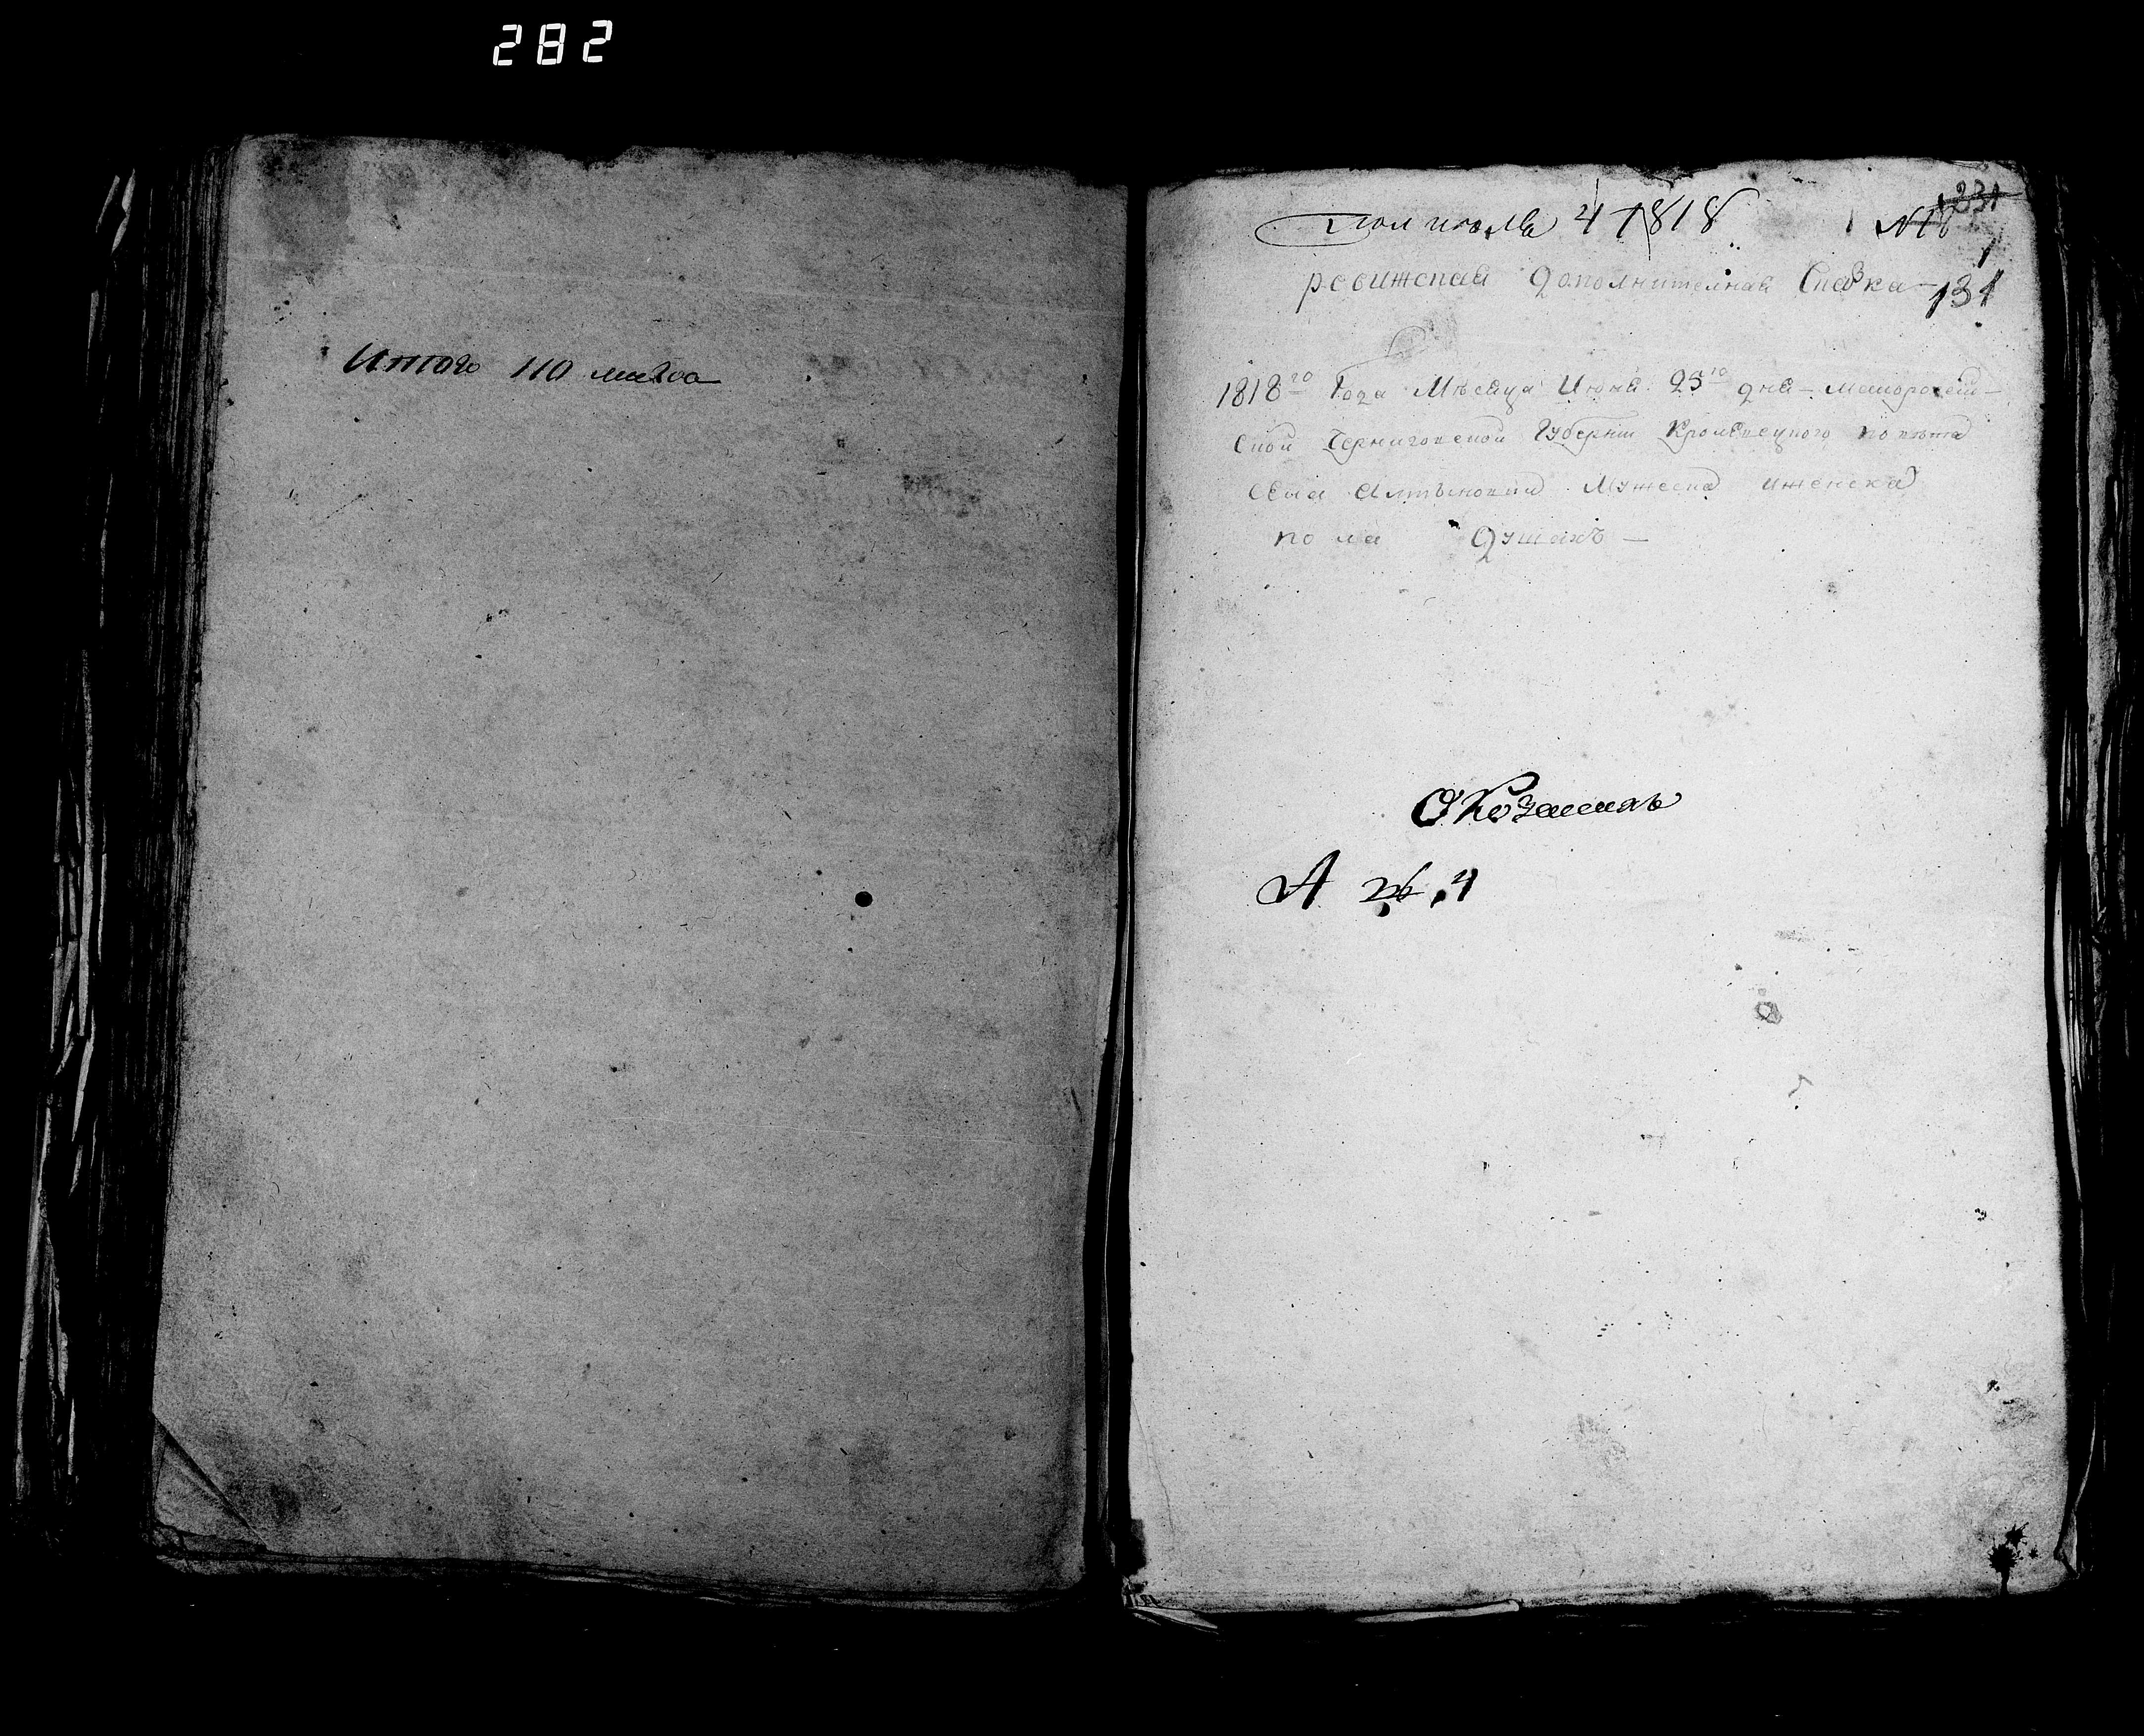 282
Итого 110 листов
июля 4 1818
№18
231
ревижская дополнителная Сказка
131
1818го Года Мѣсяца Июня 25го дня Малоросеій-
ской Черниговской Губерніи Кролевецкого повѣта
Села Алтыновки Мужеска иженска
пола душахъ —
О Козакахъ
А 26,4